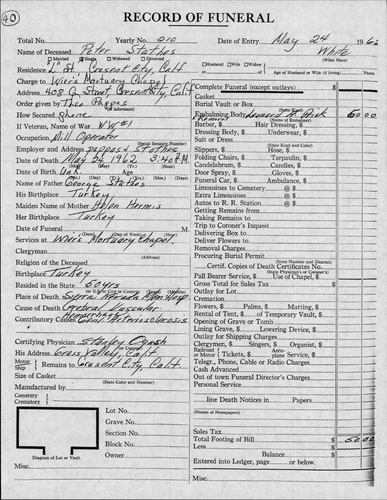 40
RECORD OF FUNERAL
Total No. Yearly No. 010 Date of Entry May 24 1962
Name of Deceased Peter Stathes White
(What Race)
Married Single Widowed Divorced
Residence "L" St. Crescent City, Calif Husband Wife Widow or Age of Husband or Wife (if living) Years
Charge to Wier's Mortuary Chapel
Address 408 G Street, Crescent City, Calif
Order given by Theo Pappas
How Secured Phone
If Veteran, of War W.W.#1
Occupation Mill Operator
(Social Security Number)
Employer and Address Pappas & Stathes
Date of Death May 24 1962 3:40A.M.
Date of Birth Unk.
Name of Father George Stathes
His Birthplace Turkey
Maiden Name of Mother Helen Hermis
Her Birthplace Turkey
Date of Funeral M.
Services at Wier's Mortuary Chapel.
Clergyman
(Address)
Religion of the Deceased
Birthplace Turkey
Resided in the State 50yrs
Place of Death Sierra Nevada Mem. Hosp.
Cause of Death Cerebral Vascular
Hemorrhage
Contributory Causes Arteriosclerosis
Certifying Physician Stanley
His Address Grass Valley, Calif
Motor Ship Remains to Crescent City Calif
Size of Casket
(State Color and Number)
Manufactured by
Cemetery
Crematory
Lot No.
Grave No.
Section No.
Block No.
Owner
Diagram of Lot or Vault
Misc.
Complete Funeral (except outlays) $
Casket
Burial Vault or Box
(State Kind)
Embalming Body 50 00
(Name of Embalmer)
Barber, $ Hair Dressing, $
Dressing Body, $ Underwear, $
Suit or Dress
(State Kind and Color)
Slippers, $ Hose, $
Folding Chairs, $ Tarpaulin, $
Candelabrum, $ Candles, $
Door Spray, $ Gloves, $
Funeral Car, $ Ambulance, $
Limousines to Cemetery @ $
Extra Limousines @ $
Autos to R. R. Station @ $
Getting Remains from
Taking Remains to
Trip to Coroner's Inquest
Delivering Box to
Deliver Flowers to
Removal Charges
Procuring Burial Permit
(State Number and District)
Certif. Copies of Death Certificates No.
(State Number of Certificates)
Pall Bearer Service, $ Use of Chapel, $
Gross Total for Sales Tax $
Outlay for Lot
Cremation
Flowers, $ Palms, $ Matting, $
Rental of Tent, $ of Temporary Vault, $
Opening of Grave or Tomb
Lining Grave, $ Lowering Device, $
Outlay for Shipping Charges
Clergymen, $ Singers, $ Organist, $
Railroad or Motor Tickets, $ Aeroplane Service, $
Telegr., Phone, Cable or Radio Charges
Cash Advanced
Out of town Funeral Director's Charges
Personal Service
line Death Notices in Papers
(Names of Newspapers)
Sales Tax
Total Footing of Bill $ 50 00
Less $
Balance $
Entered into Ledger, page or below.
Misc.